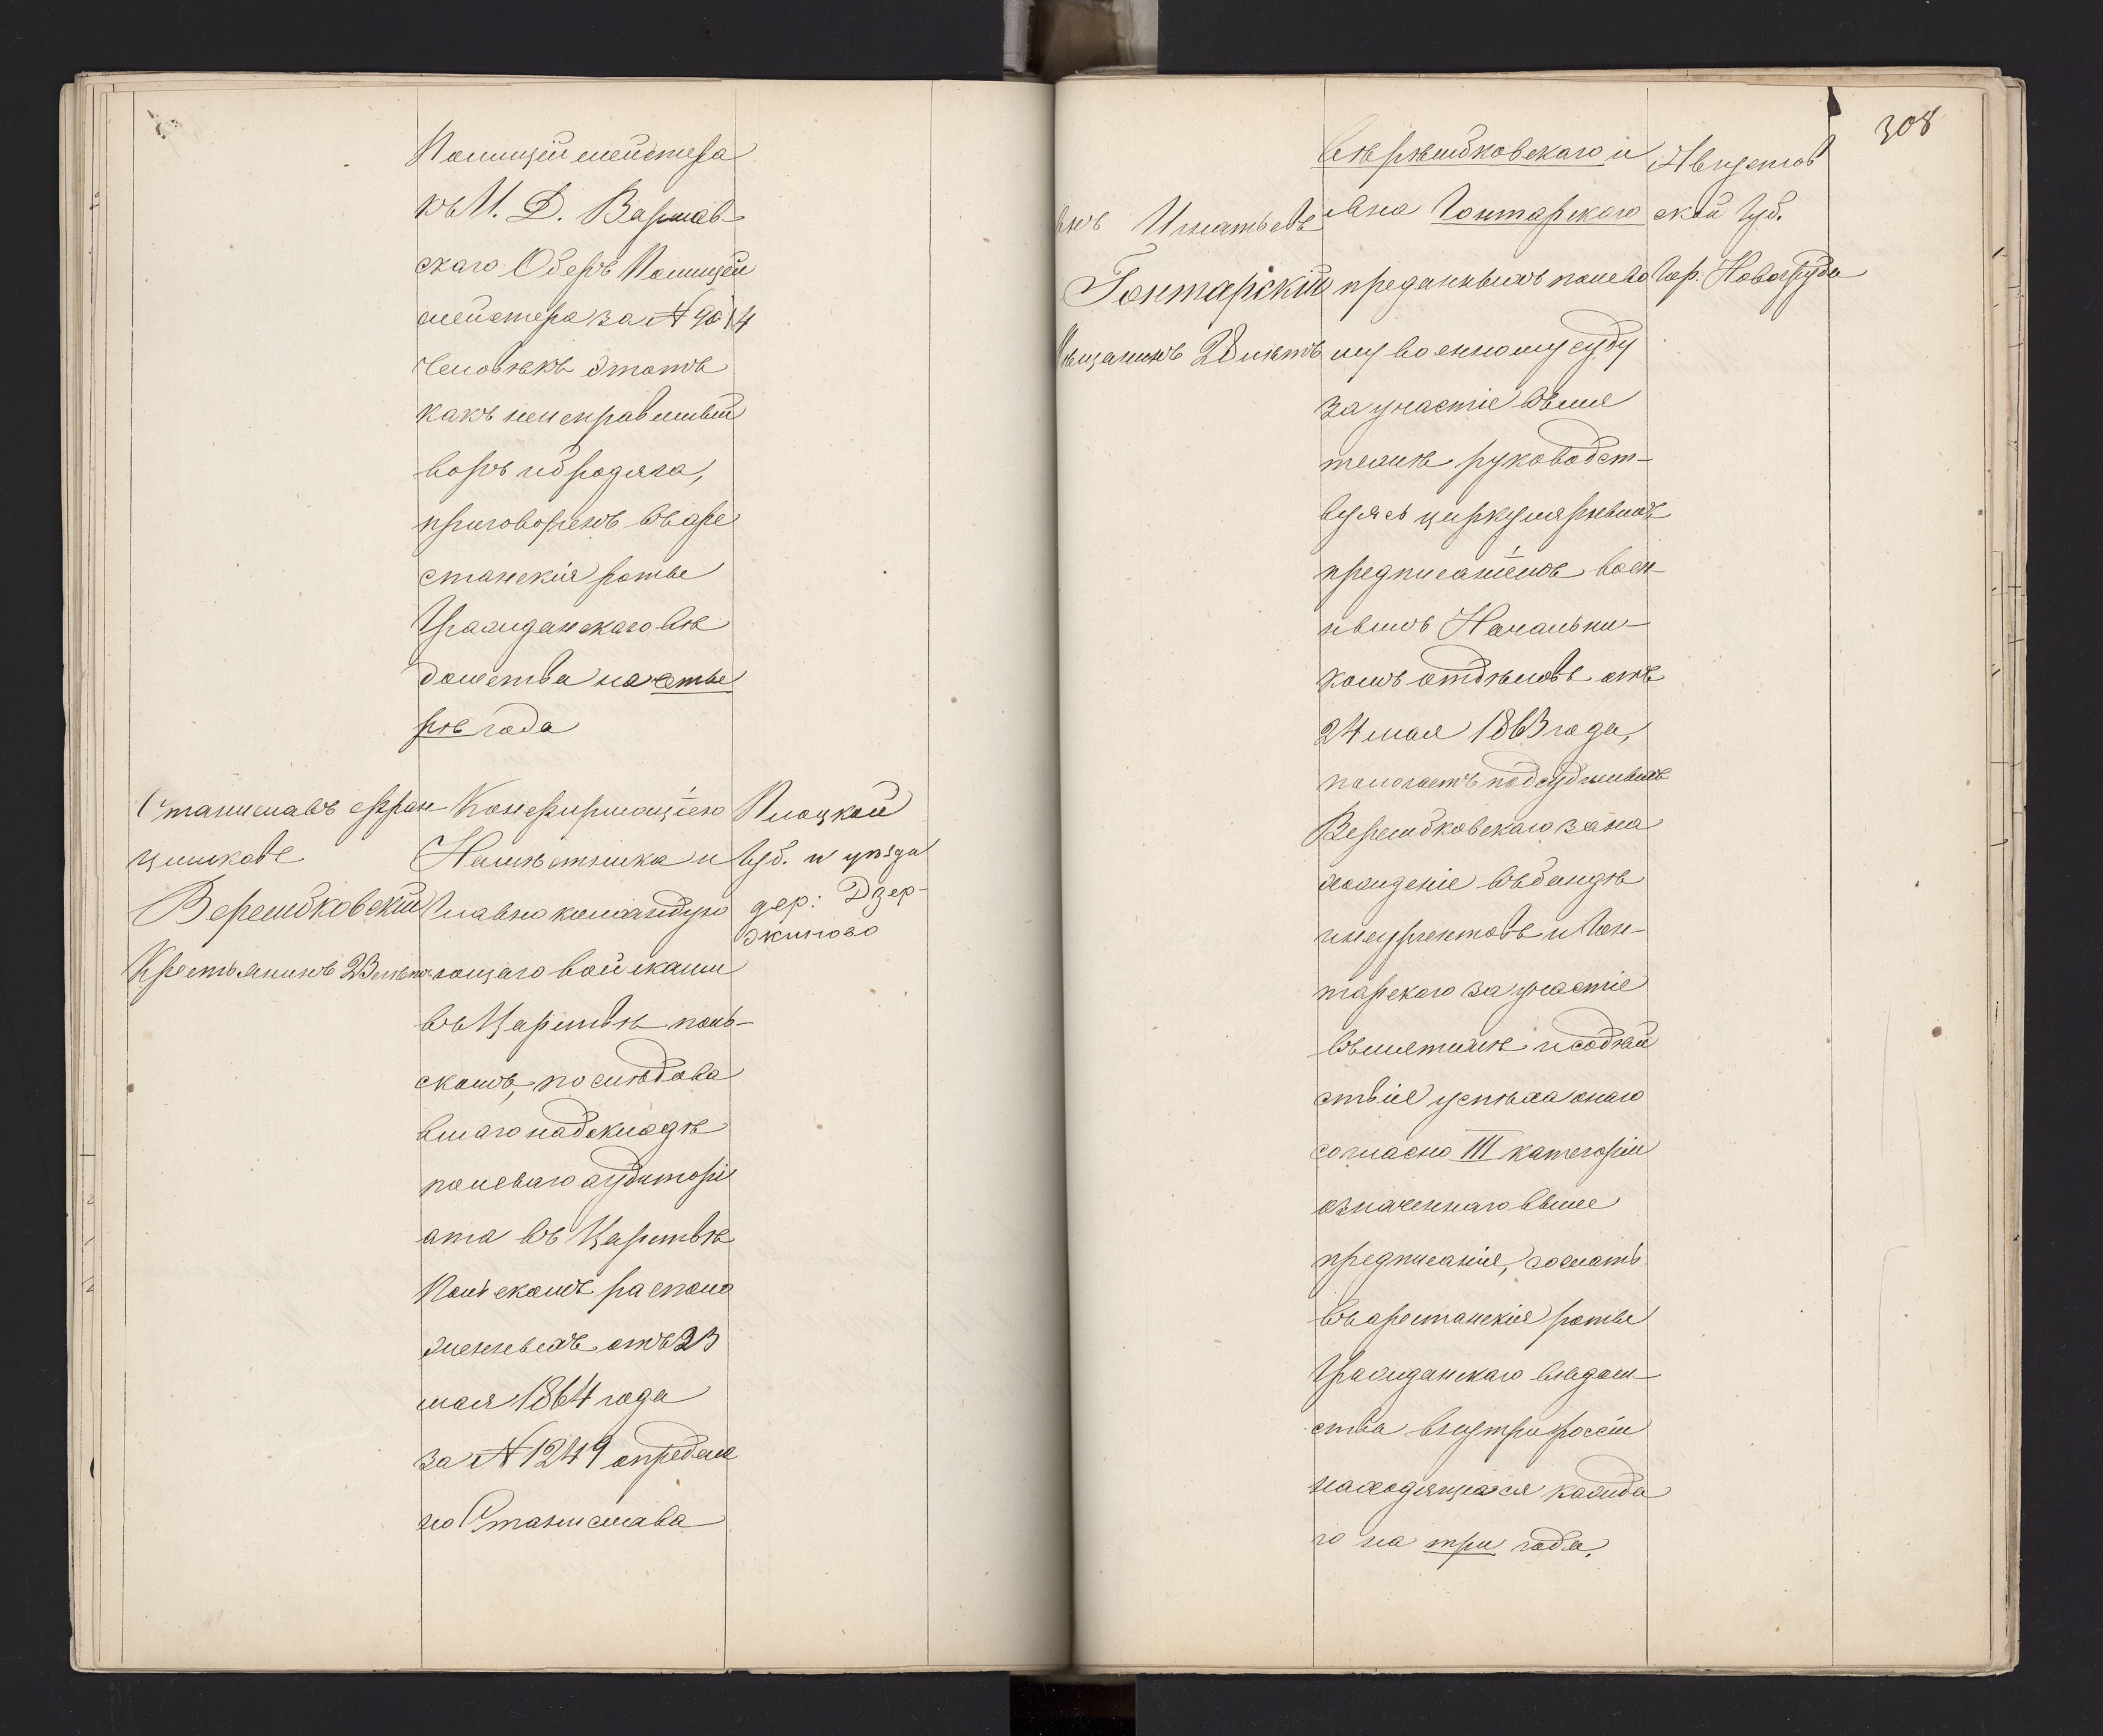 Полиціймейстера
къ И. Д. Варшав
скаго Оберъ Полицей
мейстера за № 9014
человѣкъ этотъ
какъ неисправимый
воръ и бродяга,
приговоренъ въ аре
станскія роты
Гражданскаго вѣ
домства на четы
рѣ года
Станиславъ Фран
цишковъ
Верембковскій
Крестьянинъ 23 лѣтъ
Конфирмаціею
Намѣстника и
Главнокомандую
ющаго войсками
въ Царствѣ поль-
скомъ, последова
вшаго на докладѣ
полеваго аудиторі
ата въ Царствѣ
Польскомъ располо
женныхъ отъ 23
мая 1864 года
за № 1249 опредѣле
но Станислава
Плоцкой
Губ. и уѣзда
дер: Дзер-
жиново
308
Вѣрѣмбковскаго и
Яна Гонтарскаго
преданныхъ полево
му военному суду
за участіе въ мя
тежѣ руководст-
вуясь циркулярнымъ
предписаніемъ воен-
нымъ Начальни-
комъ отдѣловъ отъ
24 мая 1863 года,
пологаетъ подсудимыхъ
Верембковскаго за на
хожденіе въ бандѣ
инсургентовъ и Гон-
тарскаго за участіе
въ мятежѣ и содѣй
ствіе успѣха онаго
согласно III категоріи
означеннаго выше
предписанія, сослать
въ арестанскія роты
Гражданскаго вѣдом-
ства внутри россіи
находящіяся каждо
го на три года.
Янъ Игнатьевъ
Гонтарскій
Мѣщанинъ 28 лѣтъ
Августов
ской Губ.
Гор. Новогруда